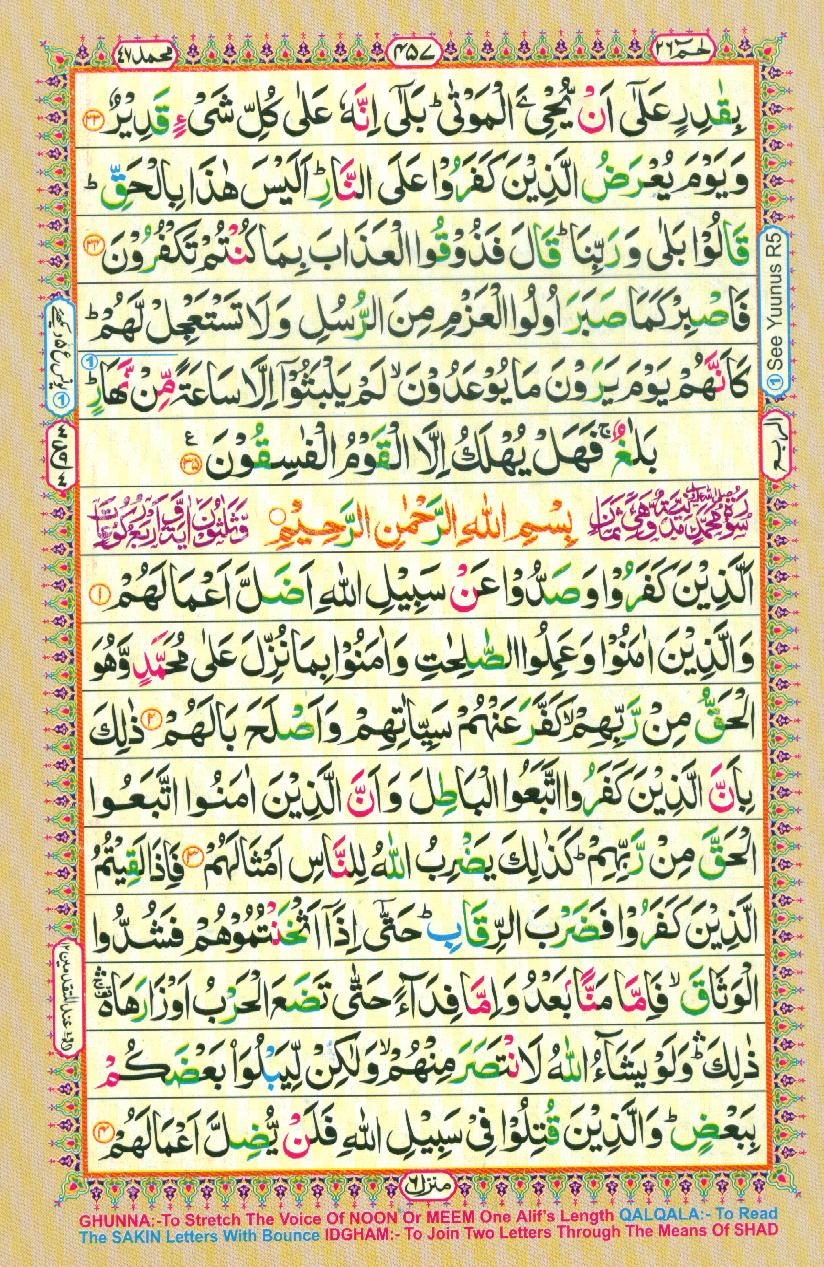 حٰمٓ ٢٦
٤٥٧
محمد ٤٧
بِقٰدِرٍ عَلٰٓى اَنْ يُّحْيِۦَ الْمَوْتٰى ؕ بَلٰٓى اِنَّهٗ عَلٰى كُلِّ شَىْءٍ قَدِيْرٌ ﴿۳۳﴾
وَيَوْمَ يُعْرَضُ الَّذِيْنَ كَفَرُوْا عَلَى النَّارِ ؕ اَلَيْسَ هٰذَا بِالْحَقِّ ؕ
قَالُوْا بَلٰى وَرَبِّنَا ؕ قَالَ فَذُوْقُوا الْعَذَابَ بِمَا كُنْتُمْ تَكْفُرُوْنَ ﴿۳۴﴾
فَاصْبِرْ كَمَا صَبَرَ اُولُوا الْعَزْمِ مِنَ الرُّسُلِ وَلَا تَسْتَعْجِلْ لَّهُمْ ؕ
كَاَنَّهُمْ يَوْمَ يَرَوْنَ مَا يُوْعَدُوْنَ ۙ لَمْ يَلْبَثُوْٓا اِلَّا سَاعَةً مِّنْ نَّهَارٍ ؕ
بَلٰغٌ ۚ فَهَلْ يُهْلَكُ اِلَّا الْقَوْمُ الْفٰسِقُوْنَ ﴿۳۵﴾ ع
① See Yuunus R5
الربع
سُوْرَةُ مُحَمَّدٍ مَّدَنِيَّةٌ وَّهِىَ ثَمَانٍ
بِسْمِ اللّٰهِ الرَّحْمٰنِ الرَّحِيْمِ
وَّثَلٰثُوْنَ اٰيَةً وَّاَرْبَعُ رُكُوْعَاتٍ
اَلَّذِيْنَ كَفَرُوْا وَصَدُّوْا عَنْ سَبِيْلِ اللّٰهِ اَضَلَّ اَعْمَالَهُمْ ﴿۱﴾
وَالَّذِيْنَ اٰمَنُوْا وَعَمِلُوا الصّٰلِحٰتِ وَاٰمَنُوْا بِمَا نُزِّلَ عَلٰى مُحَمَّدٍ وَّهُوَ
الْحَقُّ مِنْ رَّبِّهِمْ ۙ كَفَّرَ عَنْهُمْ سَيِّاٰتِهِمْ وَاَصْلَحَ بَالَهُمْ ﴿۲﴾ ذٰلِكَ
بِاَنَّ الَّذِيْنَ كَفَرُوا اتَّبَعُوا الْبَاطِلَ وَاَنَّ الَّذِيْنَ اٰمَنُوا اتَّبَعُوا
الْحَقَّ مِنْ رَّبِّهِمْ ؕ كَذٰلِكَ يَضْرِبُ اللّٰهُ لِلنَّاسِ اَمْثَالَهُمْ ﴿۳﴾ فَاِذَا لَقِيْتُمُ
الَّذِيْنَ كَفَرُوْا فَضَرْبَ الرِّقَابِ ؕ حَتّٰٓى اِذَآ اَثْخَنْتُمُوْهُمْ فَشُدُّوا
الْوَثَاقَ ۙ فَاِمَّا مَنًّۢا بَعْدُ وَاِمَّا فِدَآءً حَتّٰى تَضَعَ الْحَرْبُ اَوْزَارَهَا ۛ
ذٰلِكَ ۛ وَلَوْ يَشَآءُ اللّٰهُ لَانْتَصَرَ مِنْهُمْ ۙ وَلٰكِنْ لِّيَبْلُوَا۟ بَعْضَكُمْ
بِبَعْضٍ ؕ وَالَّذِيْنَ قُتِلُوْا فِىْ سَبِيْلِ اللّٰهِ فَلَنْ يُّضِلَّ اَعْمَالَهُمْ ﴿۴﴾
منزل ٦
GHUNNA:-To Stretch The Voice Of NOON Or MEEM One Alif's Length QALQALA:- To Read
The SAKIN Letters With Bounce IDGHAM:- To Join Two Letters Through The Means Of SHAD